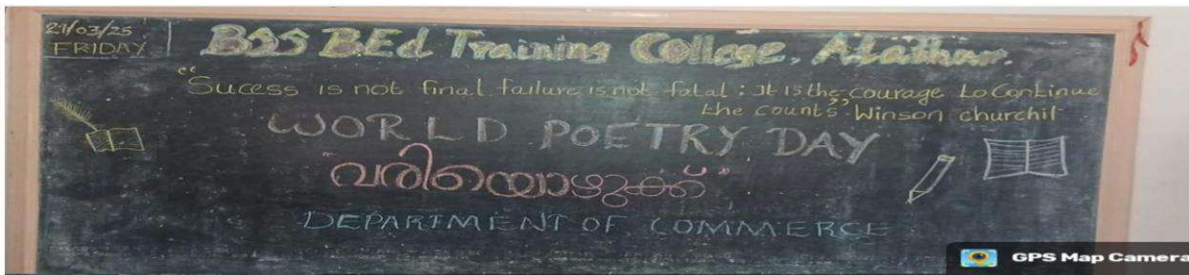 21/03/25
FRIDAY
BSS BEd Training College, Alathur.
"Sucess is not final failure is not fatal : It is the courage to Continue
the counts" Winson churchil
WORLD POETRY DAY
"വരിയൊഴുക്ക്"
DEPARTMENT OF COMMERCE
GPS Map Camera